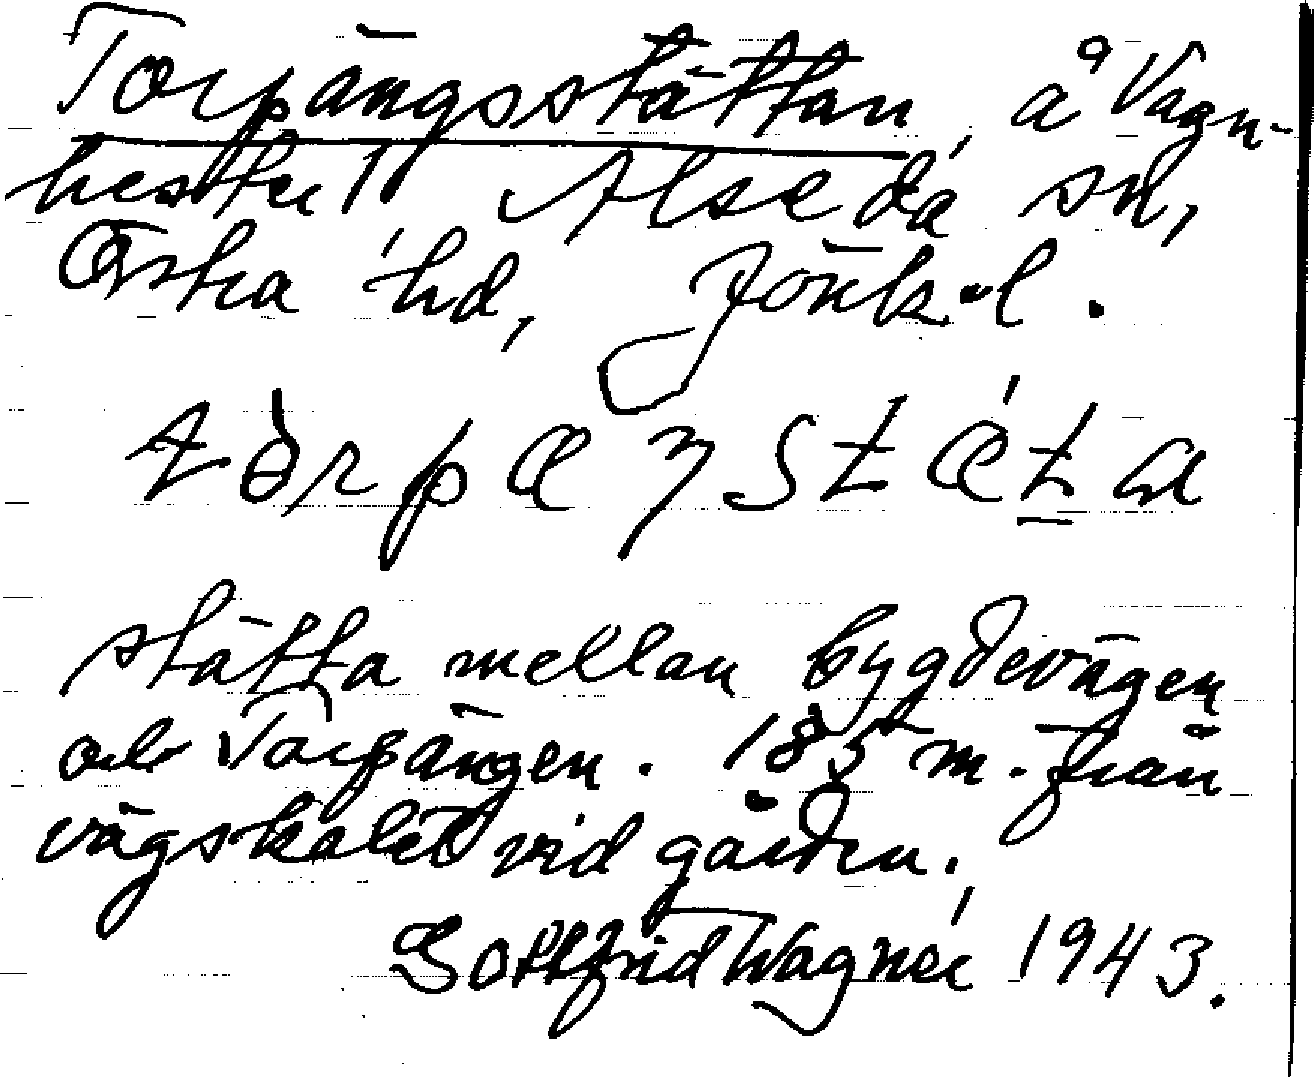 Torpängsstättan, å Vagn-
hester 1 Alseda sn,
Östra hd, Jönk. l.
tòrpæŋstǽta
stätta mellan bygdevägen
och Torpängen. 185 m. från
vägskälet vid gården.
Gottfrid Wagnér 1943.